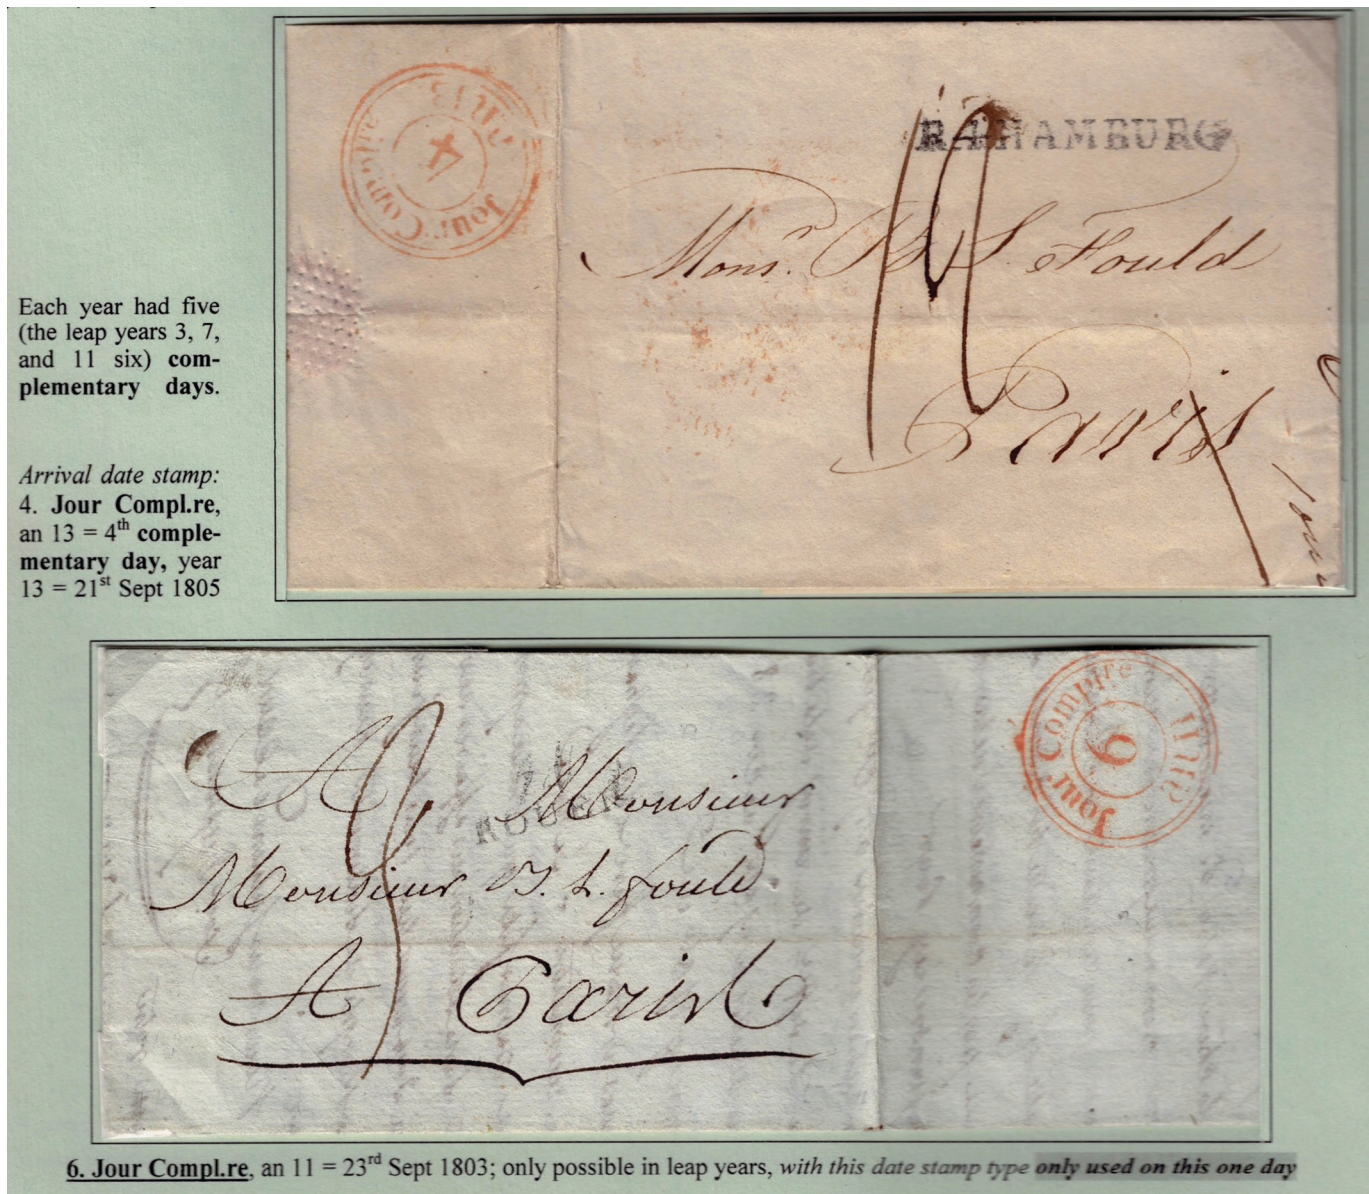 Each year had five
(the leap years 3, 7,
and 11 six) com-
plementary days.
Arrival date stamp:
4. Jour Compl.re,
an 13 = 4th comple-
mentary day, year
13 = 21st Sept 1805
Jour Complre
4
AN 13
R.4.HAMBURG
Monsr. B. L. Fould
Paris
Jour Complre
6
74
ROUEN
A Monsieur
Monsieur B. L. fould
A Paris
6. Jour Compl.re, an 11 = 23rd Sept 1803; only possible in leap years, with this date stamp type only used on this one day